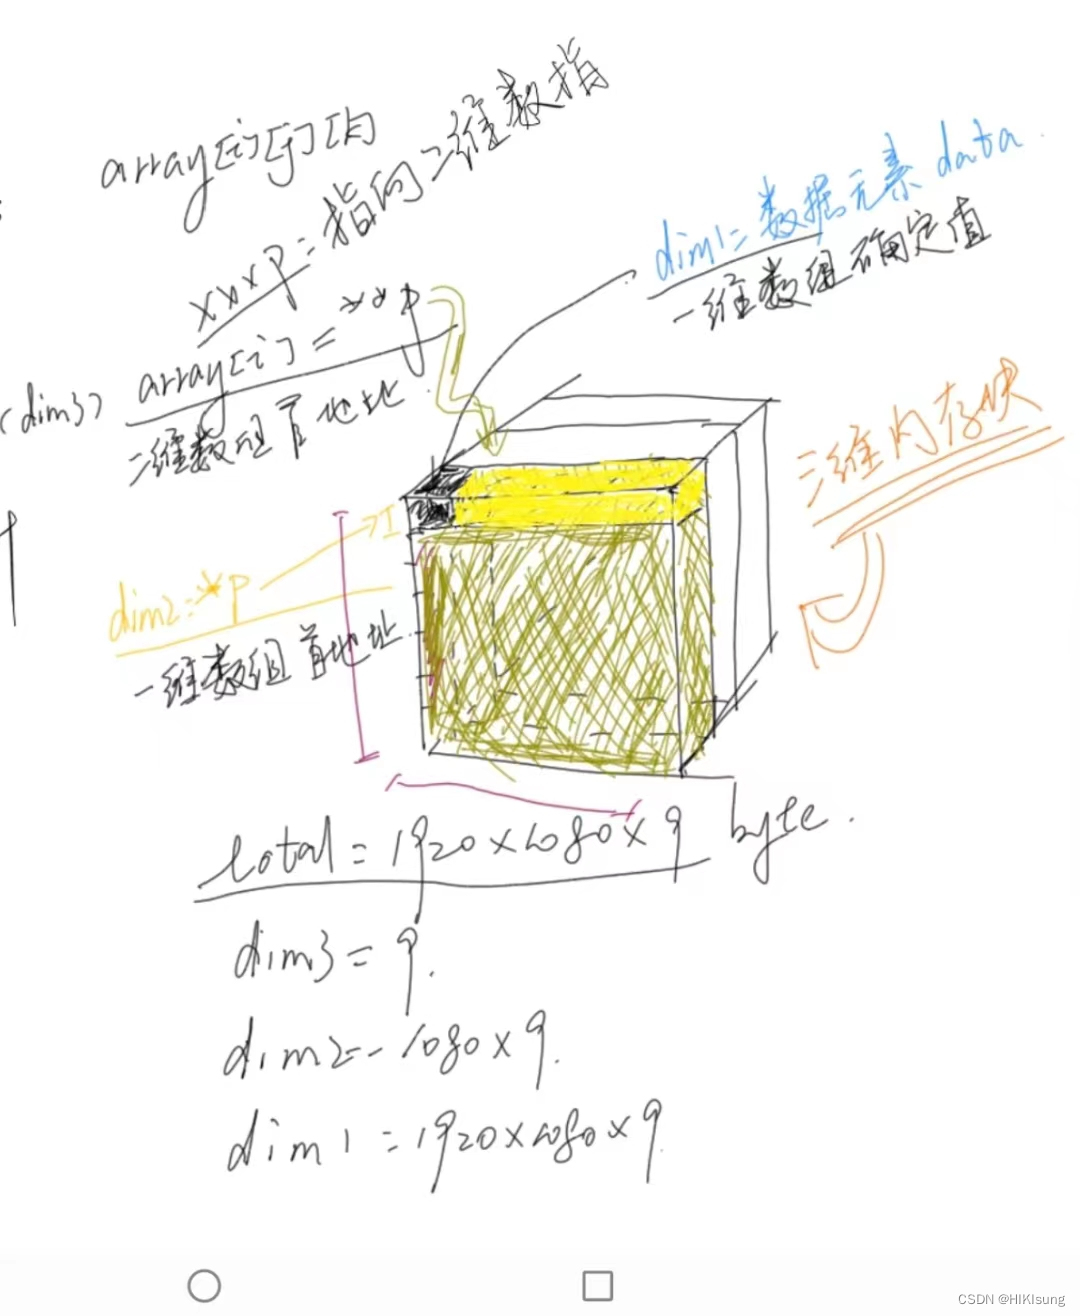 array[i][j][k]
***p = 指向二维数指
array[i] = **p
(dim3)
二维数组首地址
dim1 = 数据元素 data
一维数组确定值
三维内存块
dim2 = *p
一维数组首地址
total = 1920×1080×9 byte.
dim3 = 9.
dim2 = 1080×9.
dim1 = 1920×1080×9
CSDN @HIKIsung